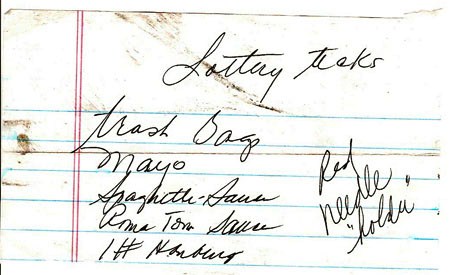 Lottery tcks
Trash Bags
Mayo
Spaghetti-Sauce
Roma Tom Sauce
1# Hamburg
Red
Needle
"holder"